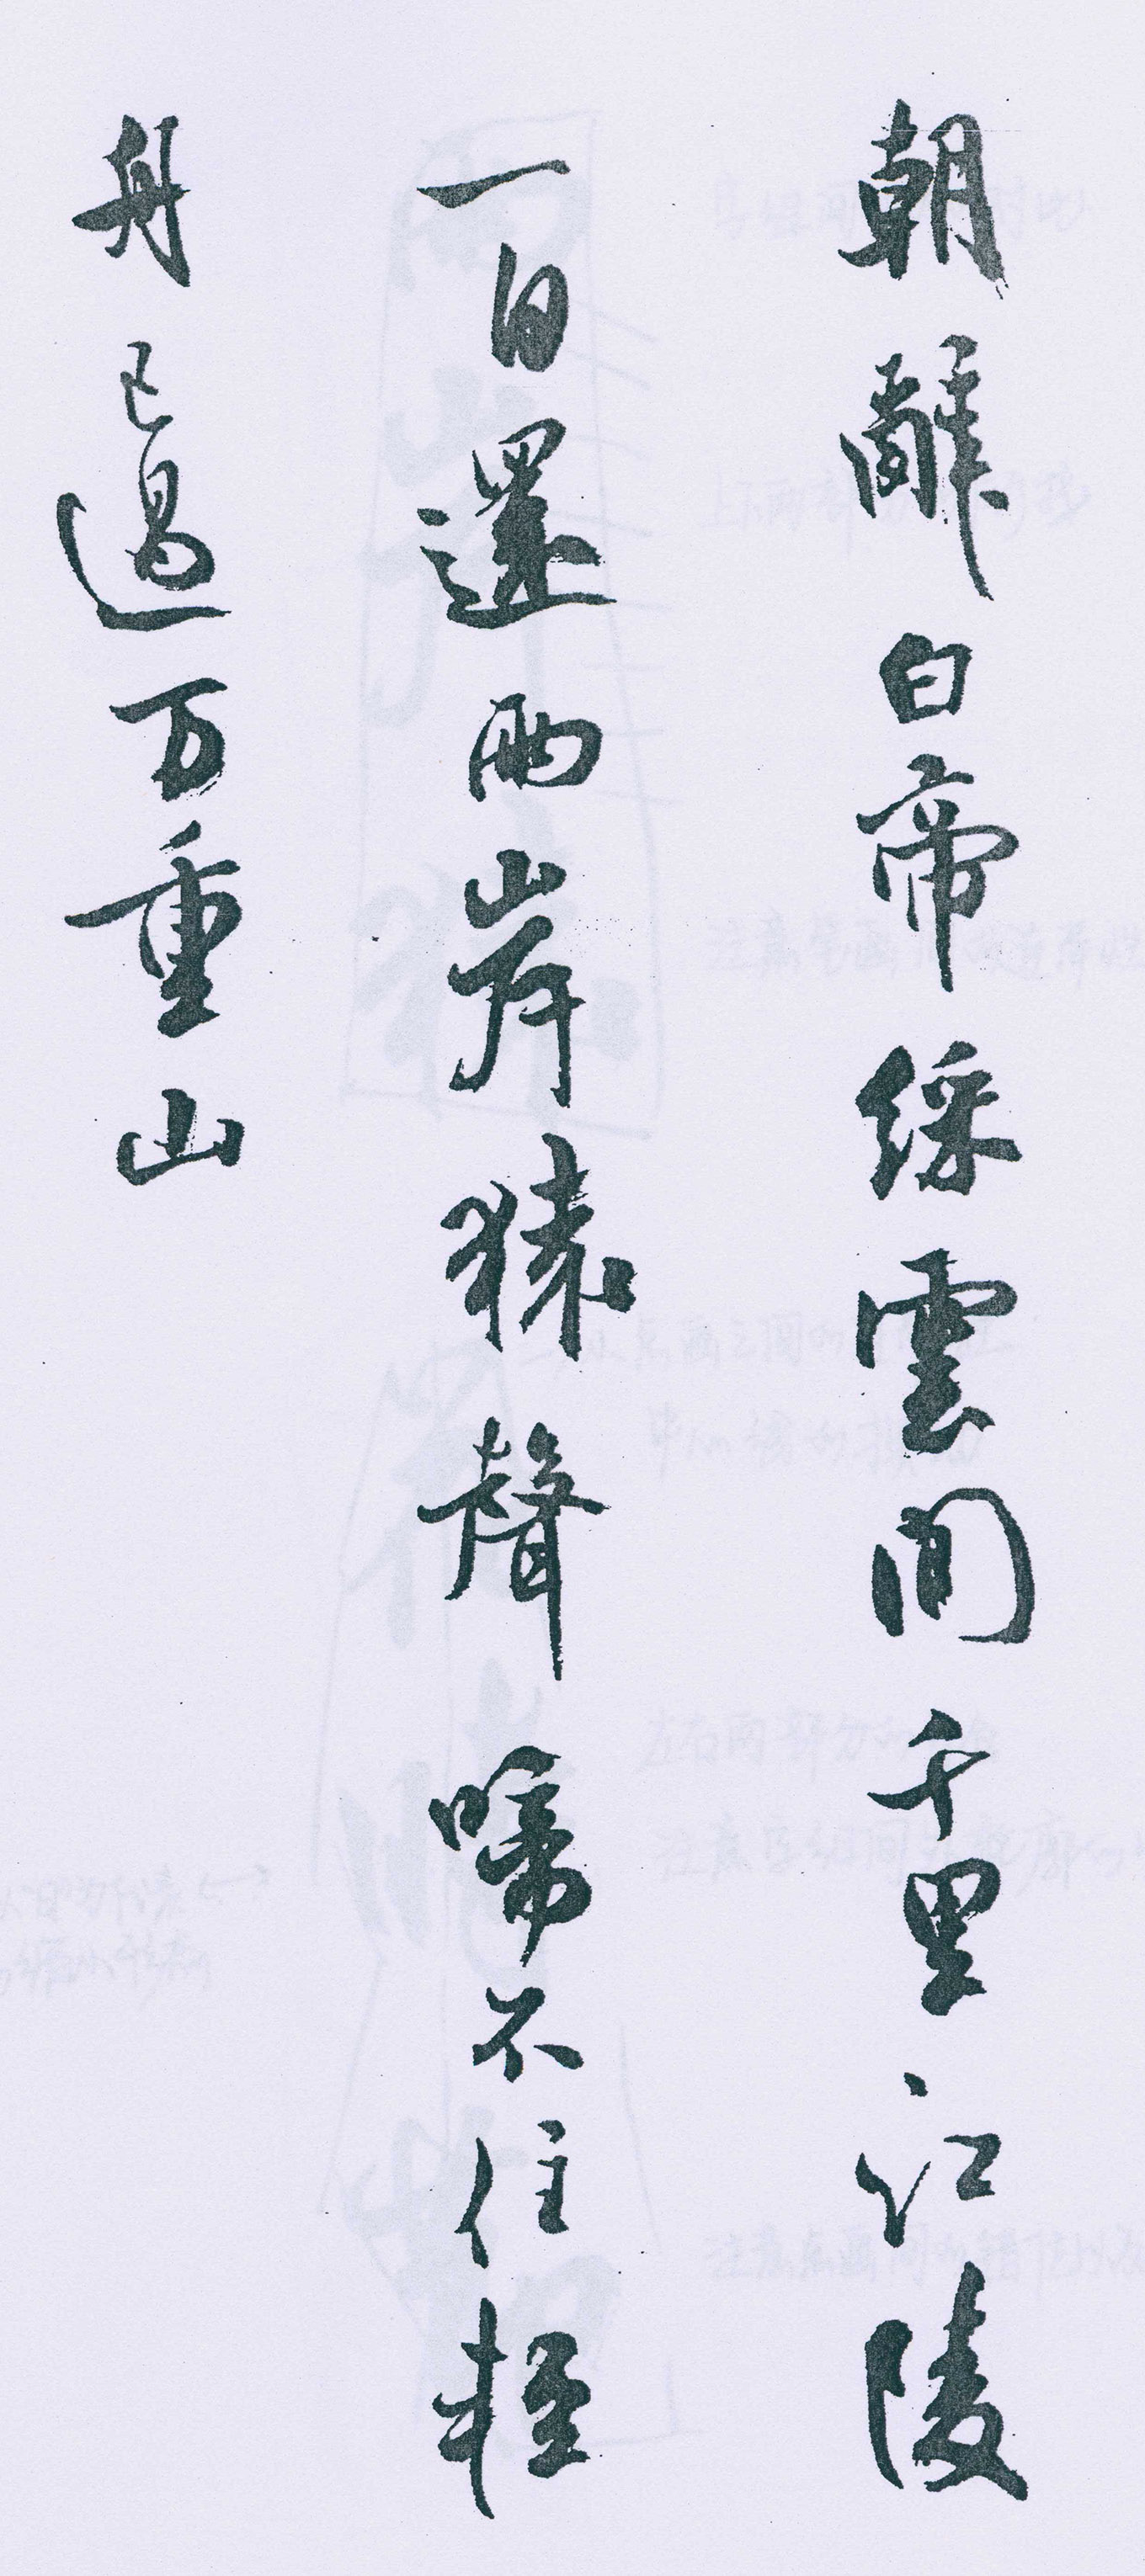 朝辭白帝綵雲間千里江陵
一日還兩岸猿聲啼不住輕
舟已過万重山